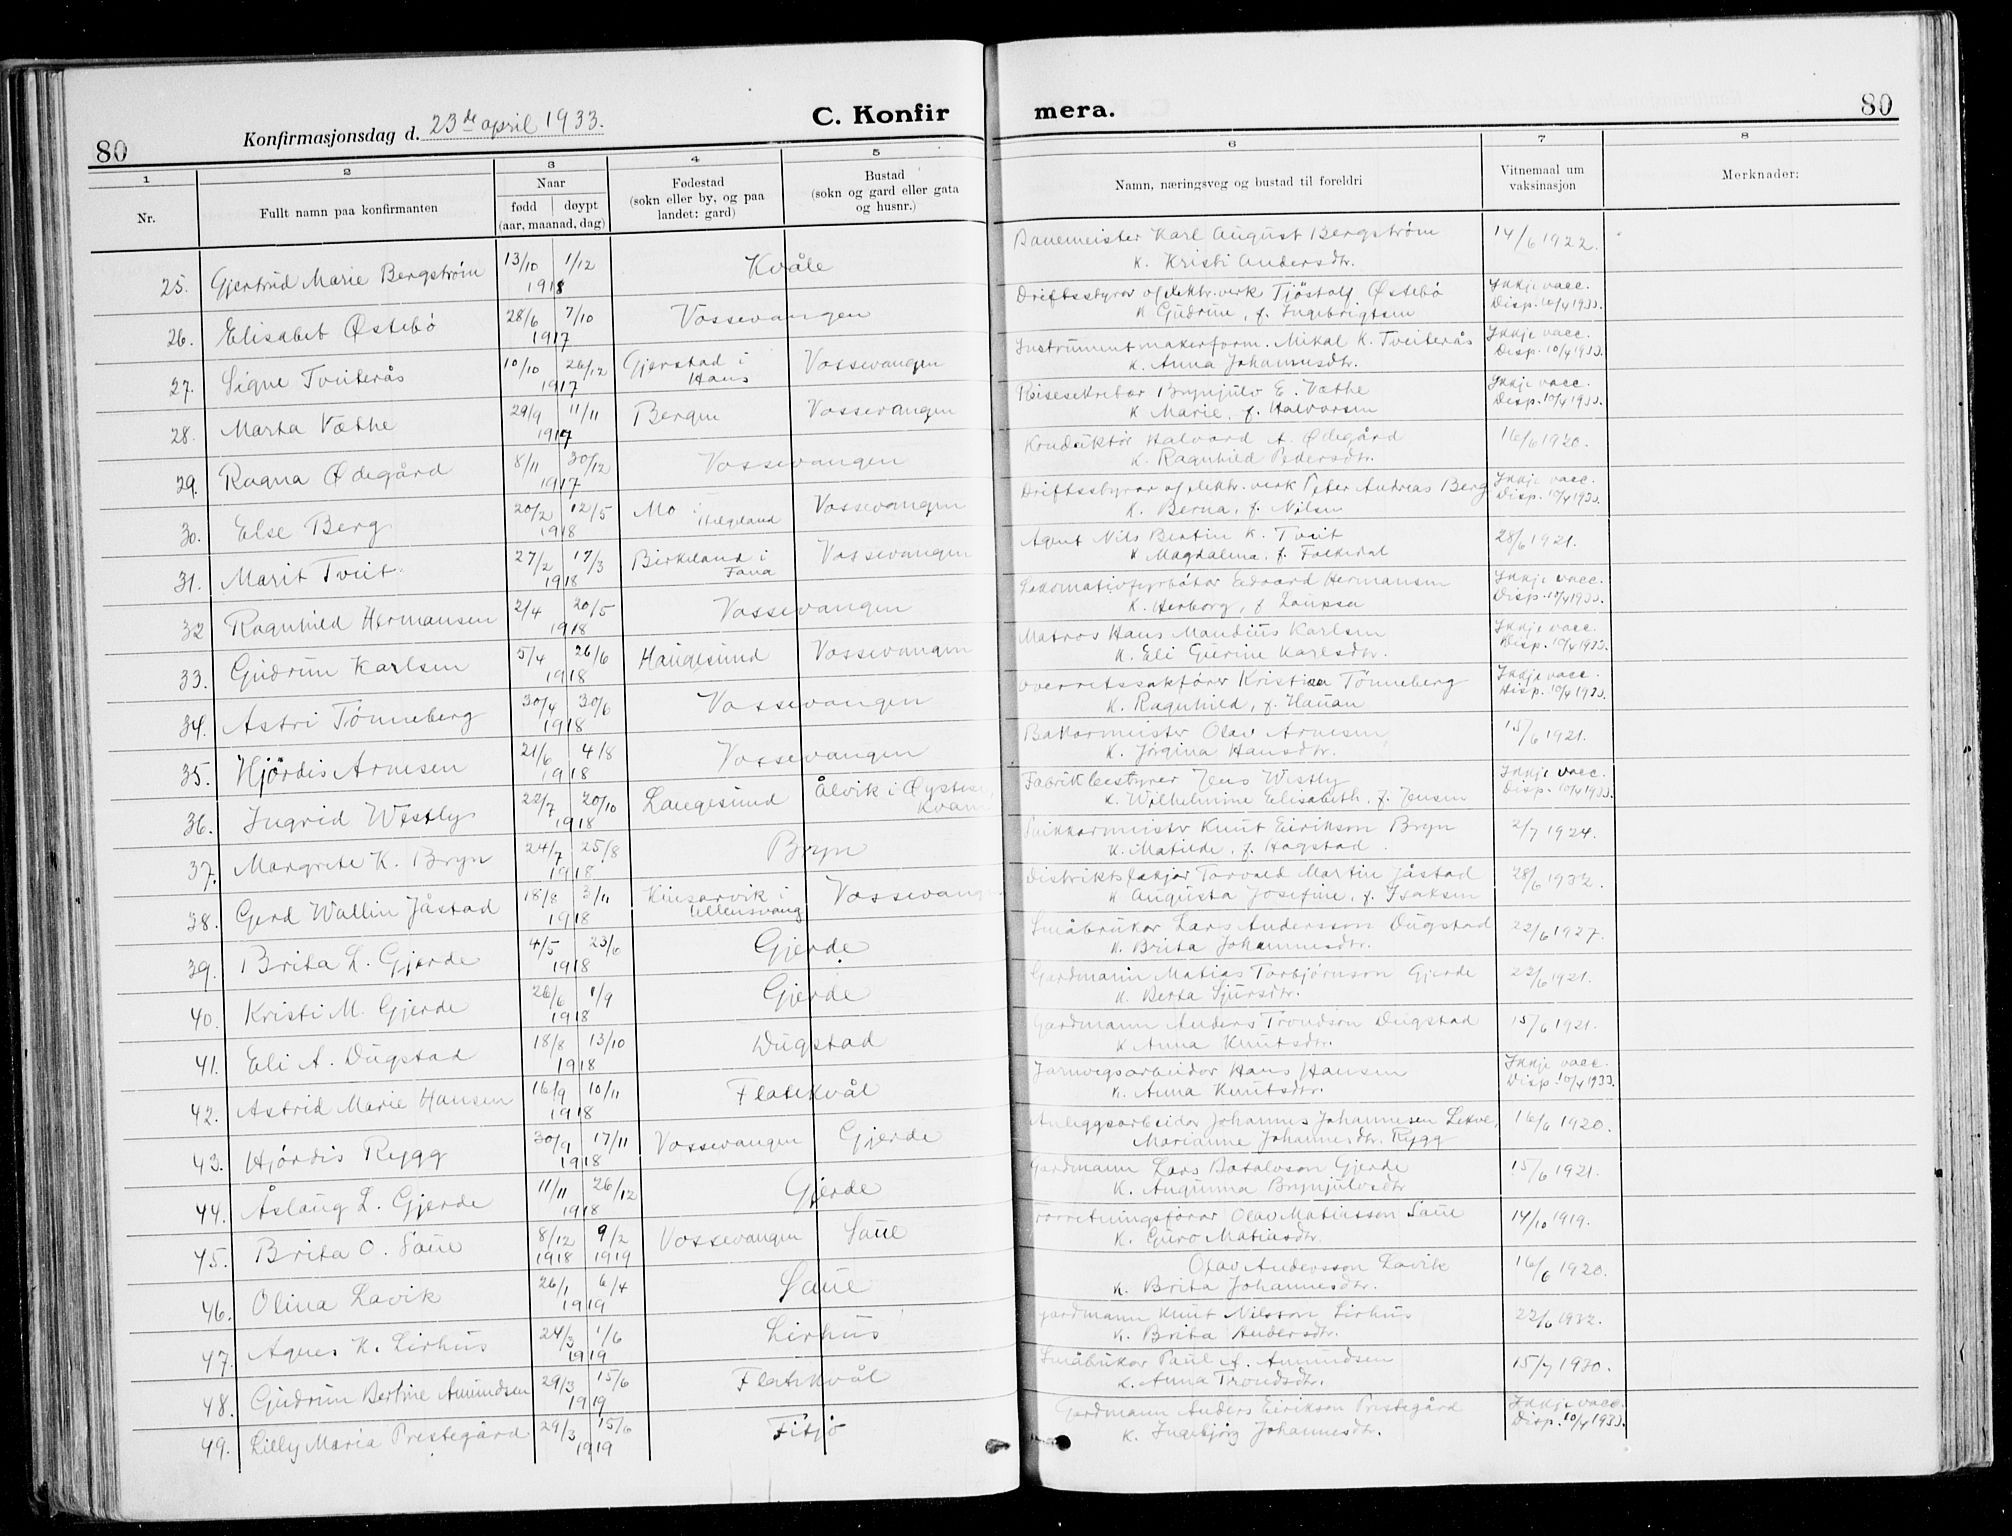 80
Konfirmasjonsdag d. 23de april 1933.
C. Konfir
mera.
80
1 2 3 4 5 6 7 8
Nr.
Fullt namn paa konfirmanten
Naar
fødd døypt
(aar, maanad, dag)
Fødestad
(sokn eller by, og paa
landet: gard)
Bustad
(sokn og gard eller gata
og husnr.)
Namn, næringsveg og bustad til foreldri
Vitnemaal um
vaksinasjon
Merknader:
25. Gjertrud Marie Bergström 13/10 1/12 1918 Kvåle Banemeister Karl August Bergström 14/6 1922.
K. Kristi Andersdtr.
26. Elisabet Østebö 28/6 7/10 1917 Vossevangen Driftsstyrar of elektr. verk Tjöstolf Østebö Ikkje vacc.
K Gudrun, f. Ingebrigtsen Disp. 10/4 1933.
27. Signe Tviterås 10/10 26/12 1917 Gjerstad i Haus Vossevangen Instrumentmakerform. Mikal K. Tviterås Ikkje vacc.
K. Anna Johannesdtr. Disp. 10/4 1933.
28. Marta Væthe 29/9 11/11 1917 Bergen Vossevangen Reisesekretær Brynjulv E. Væthe Ikkje vacc.
K Marie, f. Halvorsen Disp. 10/4 1933.
29. Ragna Ødegård 8/11 30/12 1917 Vossevangen Konduktör Halvard A. Ødegård 16/6 1920.
K. Ragnhild Pedersdtr.
30. Else Berg 20/2 12/5 1918 Mo i Helgeland Vossevangen Driftsstyrar of elektr. verk Peter Andreas Berg Ikkje vacc.
K. Berna, f. Nilsen Disp. 10/4 1933.
31. Marit Tveit 27/2 17/3 1918 Birkeland i Fana Vossevangen Agent Nils Bertin K. Tveit 28/6 1921.
K Magdalena, f. Folkedal
32 Ragnhild Hermansen 2/4 20/5 1918 Vossevangen Lokomotivfyrbötar Edvard Hermansen Ikkje vacc.
K. Herborg, f. Laupsa Disp. 10/4 1933.
33. Gudrun Karlsen 5/4 26/6 1918 Haugesund Vossevangen Matros Hans Mandius Karlsen Ikkje vacc.
K. Eli Gurine Karlsdtr. Disp. 10/4 1933.
34. Astri Tönneberg 30/4 30/6 1918 Vossevangen Overretssakförer Kristian Tönneberg Ikkje vacc.
K. Ragnhild, f. Hauan Disp. 10/4 1933.
35. Hjördis Arnesen 21/6 4/8 1918 Vossevangen Bakarmeister Olav Arnesen 15/6 1921.
K. Jörgina Hansdtr.
36. Ingrid Westly 22/7 20/10 1918 Langesund Ålvik i Øystese, Kvam Fabrikbestyrer Jens Westly Ikkje vacc.
K. Wilhelmine Elisabeth, f. Jensen Disp. 10/4 1933.
37. Margrete K. Bryn 24/7 25/8 1918 Bryn Knut Eirikson Bryn 2/7 1924.
K. Matilde, f. Hagstad
38. Gerd Wallin Jåstad 18/8 3/11 1918 Kinsarvik i Ullensvang Vossevangen Torvald Martin Jåstad 28/6 1932.
K Augusta Josefine, f. Isaksen
39. Brita L. Gjerde 4/5 23/6 1918 Gjerde Småbrukar Lars Andersson Dugstad 22/6 1927.
K. Brita Johannesdtr.
40. Kristi M. Gjerde 26/6 1/9 1918 Gjerde Gardmann Matias Torbjörnson Gjerde 22/6 1921.
K. Berta Sjursdtr.
41. Eli A. Dugstad 18/8 13/10 1918 Dugstad Gardmann Anders Trondson Dugstad 15/6 1921.
K Anna Knutsdtr.
42. Astrid Marie Hansen 16/9 10/11 1918 Flatekvål Jarnvegsarbeidar Hans Hansen Ikkje vacc.
K. Anna Knutsdtr. Disp. 10/4 1933.
43. Hjördis Rygg 30/9 17/11 1918 Vossevangen Gjerde Anleggsarbeidar Johannes Johannesen Lekve, 16/6 1920.
Marianne Johannesdtr. Rygg
44. Åslaug L. Gjerde 11/11 26/12 1918 Gjerde Gardmann Lars Botolvson Gjerde 15/6 1921.
K. Angunna Brynjulvsdtr
45. Brita O. Saue 8/12 1918 9/2 1919 Vossevangen Saue Forretningsförar Olav Matiasson Saue 14/10 1919.
K. Guro Matiasdtr.
46. Olina Lavik 26/1 6/4 1919 Saue Olav Andersson Lavik 16/6 1920.
K. Brita Johannesdtr.
47. Agnes K. Lirhus 24/3 1/6 1919 Lirhus Gardmann Knut Nilsson Lirhus 22/6 1932.
K. Brita Andersdtr.
48. Gudrun Bertine Amundsen 29/3 15/6 1919 Flatekvål Småbrukar Paul A. Amundsen 15/7 1930.
K. Anna Trondsdtr.
49. Lilly Maria Prestegård 29/3 15/6 1919 Fitjo Gardmann Anders Eirikson Prestegård Ikkje vacc.
K. Ingebjörg Johannesdtr. Disp. 10/4 1933.